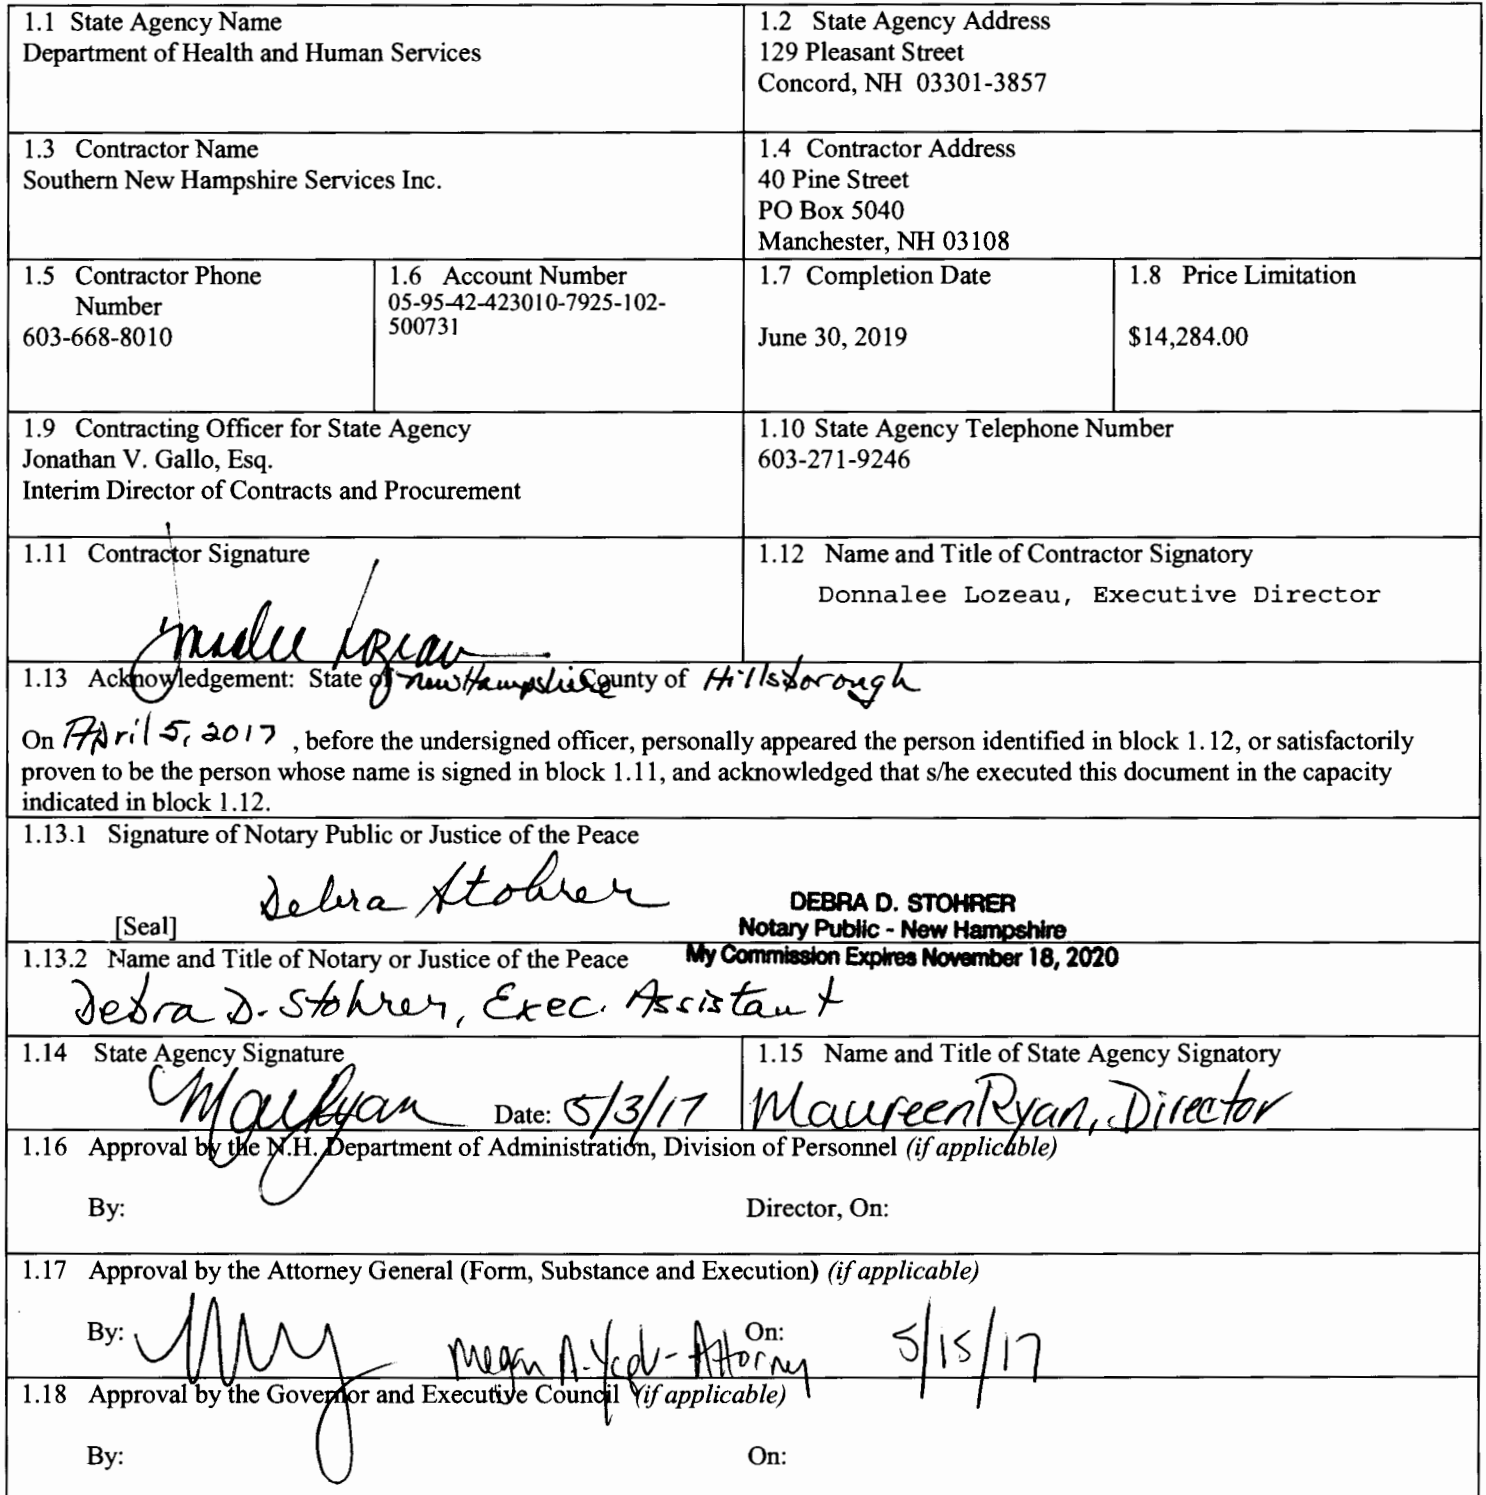 1.1 State Agency Name
Department of Health and Human Services
1.2 State Agency Address
129 Pleasant Street
Concord, NH 03301-3857
1.3 Contractor Name
Southern New Hampshire Services Inc.
1.4 Contractor Address
40 Pine Street
PO Box 5040
Manchester, NH 03108
1.5 Contractor Phone
Number
603-668-8010
1.6 Account Number
05-95-42-423010-7925-102-
500731
1.7 Completion Date
June 30, 2019
1.8 Price Limitation
$14,284.00
1.9 Contracting Officer for State Agency
Jonathan V. Gallo, Esq.
Interim Director of Contracts and Procurement
1.10 State Agency Telephone Number
603-271-9246
1.11 Contractor Signature
Lozeau
1.12 Name and Title of Contractor Signatory
Donnalee Lozeau, Executive Director
1.13 Acknowledgement: State of New Hampshire County of Hillsborough
On April 5, 2017, before the undersigned officer, personally appeared the person identified in block 1.12, or satisfactorily
proven to be the person whose name is signed in block 1.11, and acknowledged that s/he executed this document in the capacity
indicated in block 1.12.
1.13.1 Signature of Notary Public or Justice of the Peace
Debra Stohrer
[Seal]
DEBRA D. STOHRER
Notary Public - New Hampshire
My Commission Expires November 18, 2020
1.13.2 Name and Title of Notary or Justice of the Peace
Debra D. Stohrer, Exec. Assistant
1.14 State Agency Signature
Ryan Date: 5/3/17
1.15 Name and Title of State Agency Signatory
Maureen Ryan, Director
1.16 Approval by the N.H. Department of Administration, Division of Personnel (if applicable)
By: Director, On:
1.17 Approval by the Attorney General (Form, Substance and Execution) (if applicable)
By: Megan A. - Attorney On: 5/15/17
1.18 Approval by the Governor and Executive Council (if applicable)
By: On: